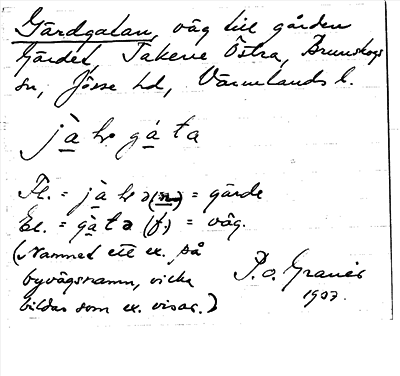 Gärdgatan, väg till gården
Gärdet, Takene Östra, Brunskogs
sn, Jösse hd, Värmlands l.
jà gá ta
Fl. = = gärde
El. = gàtə (f.) = väg.
(Namnet ett ex. på
byvägsnamn, vilka
bildas som ex. visar.)
P. O. Granér
1937.